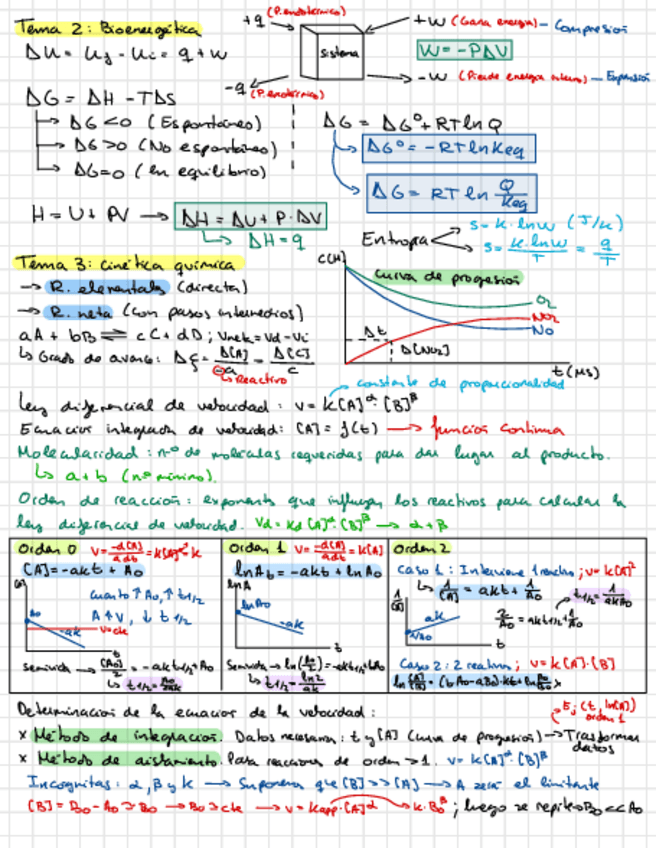 Tema 2: Bioenergética
+q (P. endotérmico)
+W (Gana energía) – Compresión
ΔU = Uf - Ui = q + w
sistema
W = -PΔV
-q (P. exotérmico)
-W (Pierde energía interna) – Expansión
ΔG = ΔH - TΔS
→ ΔG < 0 (Espontáneo)
→ ΔG > 0 (No espontáneo)
→ ΔG = 0 (en equilibrio)
ΔG = ΔG° + RT ln Q
ΔG° = -RT ln Keq
ΔG = RT ln Q/Keq
H = U + PV → ΔH = ΔU + P·ΔV
↳ ΔH = q
Entropía
S = K·lnW (J/K)
S = K·lnW/T = q/T
Tema 3: cinética química
→ R. elementales (directa)
→ R. neta (con pasos intermedios)
aA + bB ⇌ cC + dD ; Vneta = Vd - Vi
↳ Grado de avance: Δξ = Δ[A]/-a = Δ[C]/c
↳ Reactivo
C(M)
curva de progresión
O2
NO2
NO
Δt
Δ[NO2]
t (Ms)
constante de proporcionalidad
Ley diferencial de velocidad: v = k[A]^α·[B]^β
Ecuación integrada de velocidad: [A] = f(t) → función continua
Molecularidad: nº de moléculas requeridas para dar lugar al producto.
↳ a + b (nº mínimo).
Orden de reacción: exponente que influyen los reactivos para calcular la
ley diferencial de velocidad. Vd = Kd [A]^α·[B]^β → α + β
Orden 0 V = -d[A]/adt = K[A]^0 = K
[A] = -akt + A0
[A]
A0
-ak
V=cte
t
cuanto ↑A0, ↑t1/2
A↑V, ↓t1/2
Semivida → [A0]/2 = -akt1/2 + A0
↳ t1/2 = A0/2ak
Orden 1 V = -d[A]/adt = K[A]
lnA = -akt + lnA0
lnA
lnA0
-ak
t
Semivida → ln(A0/2) = -akt1/2 + lnA0
↳ t1/2 = ln2/ak
Orden 2
Caso 1: Interviene 1 reactivo; v = K[A]^2
↳ 1/[A] = akt + 1/A0
t1/2 = 1/akA0
1/[A]
ak
1/A0
t
2/A0 = akt1/2 + 1/A0
Caso 2: 2 reactivos; v = K[A]·[B]
Determinación de la ecuación de la velocidad:
Ej (t, ln[A]) orden 1
x Método de integración. Datos necesarios: t y [A] (curva de progresión) → Transformar datos
x Método de aislamiento. Para reacciones de orden > 1. v = K[A]^α [B]^β
Incógnitas: α, β y k → Suponer que [B] >> [A] → A será el limitante
[B] = B0 - A0 ≈ B0 → B0 ≈ cte → v = Kapp·[A]^α → K·B0^β ; luego se repite B0 << A0